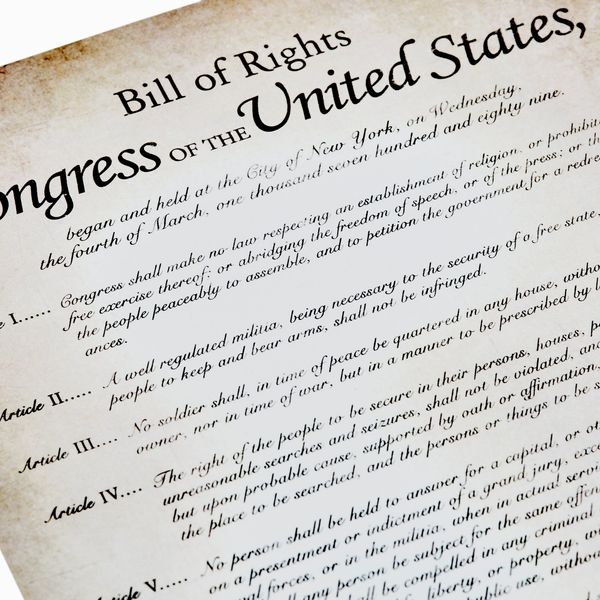 Bill of Rights
ongress OF THE United States,
began and held at the City of New York, on Wednesday,
the fourth of March, one thousand seven hundred and eighty nine.
e I...... Congress shall make no law respecting an establishment of religion, or prohibit
free exercise thereof; or abridging the freedom of speech, or of the press; or th
the people peaceably to assemble, and to petition the government for a redre
ances.
Article II..... A well regulated militia, being necessary to the security of a free state,
people to keep and bear arms, shall not be infringed.
Article III.... No soldier shall, in time of peace be quartered in any house, witho
owner, nor in time of war, but in a manner to be prescribed by l
Article IV.... The right of the people to be secure in their persons, houses, p
unreasonable searches and seizures, shall not be violated, an
but upon probable cause, supported by oath or affirmation,
the place to be searched, and the persons or things to be s
rticle V..... No person shall be held to answer for a capital, or ot
on a presentment or indictment of a grand jury, exce
al forces, or in the militia, when in actual servi
all any person be subject for the same offen
all be compelled in any criminal
liberty, or property, w
ublic use, withou